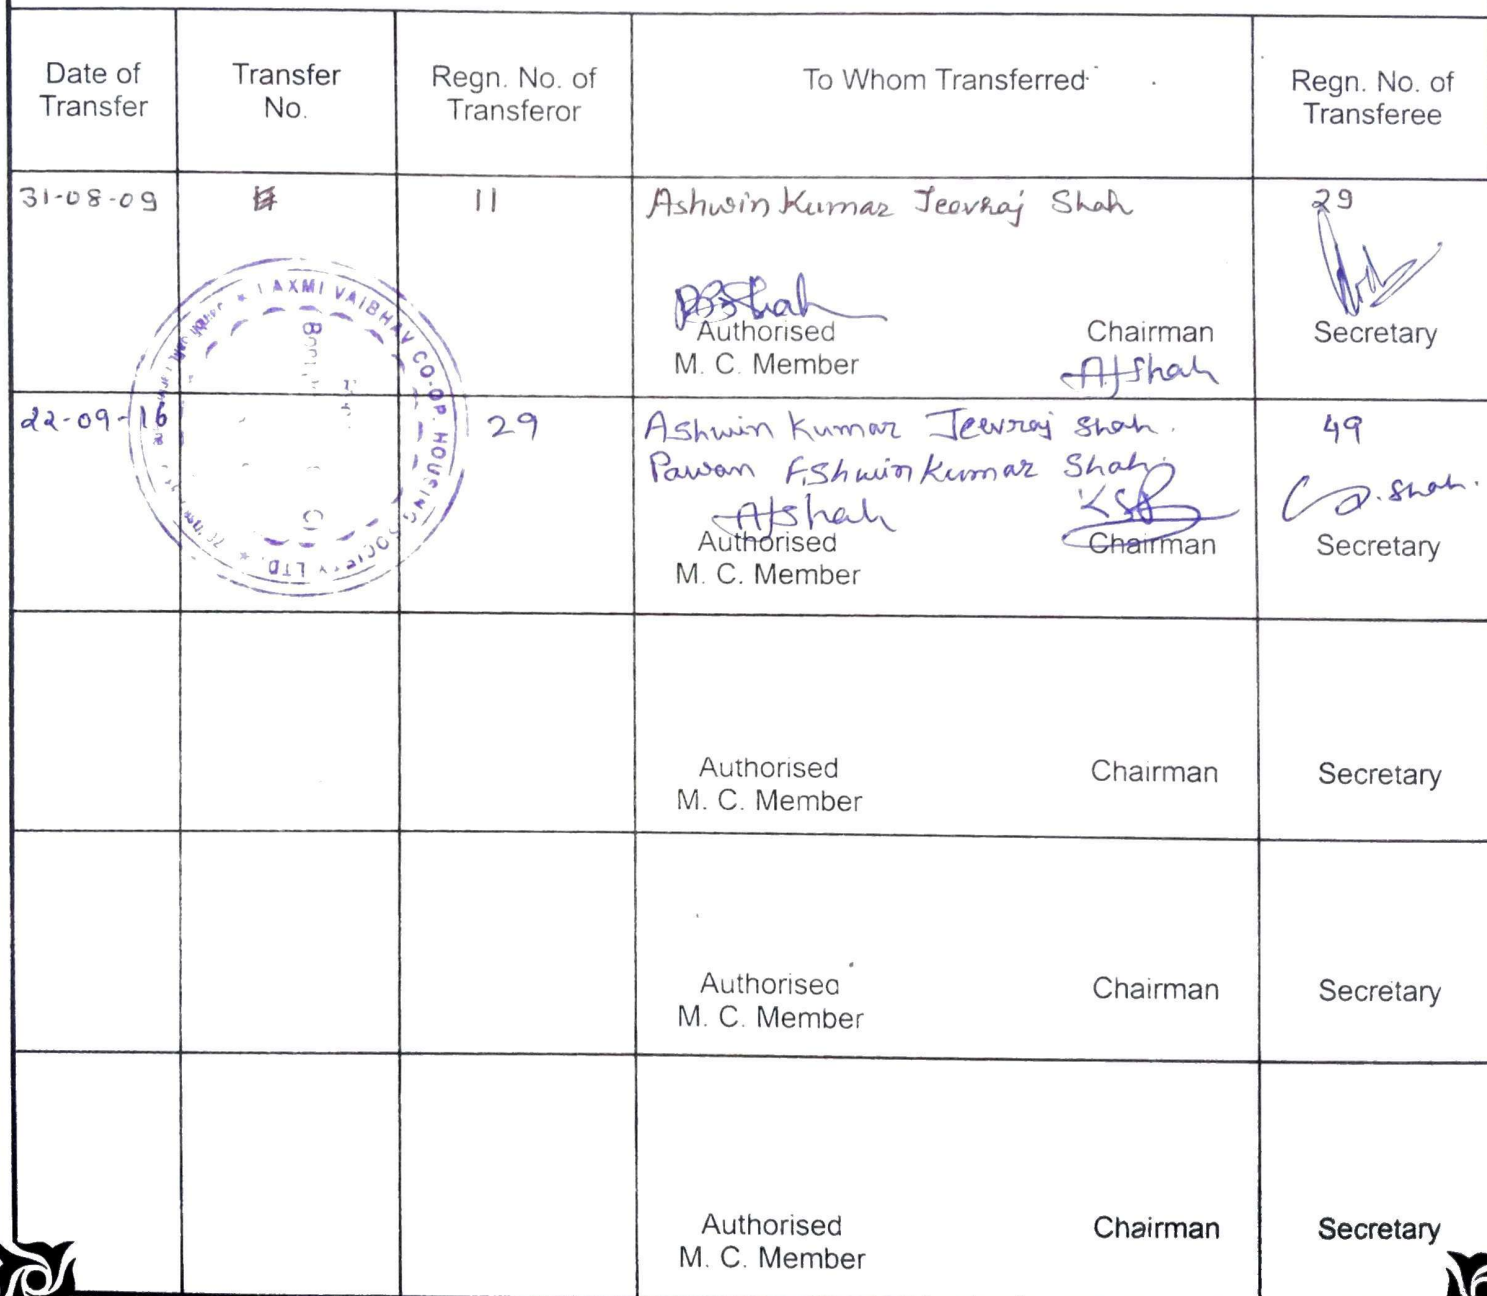 Date of
Transfer
Transfer
No.
Regn. No. of
Transferor
To Whom Transferred
Regn. No. of
Transferee
31-08-09
11
Ashwin Kumar Jeevraj Shah
29
Shah
Authorised
M. C. Member
Chairman
AJShah
Secretary
LAXMI VAIBHAV CO-OP. HOUSING SOCIETY LTD.
22-09-16
29
Ashwin Kumar Jeevraj Shah.
Pawan Ashwin Kumar Shah
49
AJShah
Authorised
M. C. Member
Chairman
Shah.
Secretary
Authorised
M. C. Member
Chairman
Secretary
Authorised
M. C. Member
Chairman
Secretary
Authorised
M. C. Member
Chairman
Secretary